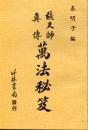 秦明子 編
張天師
真傳
萬法秘笈
竹林書局發行